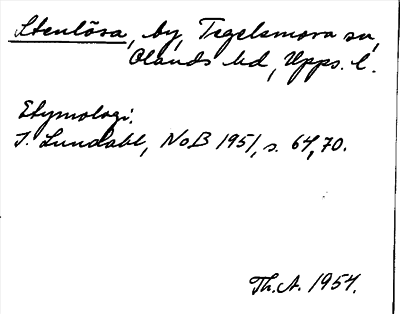 Stenlösa, by, Tegelsmora sn,
Olands hd, Upps. l.
Etymologi.
I. Lundahl, NoB 1951, s. 64, 70.
Th. A. 1954.